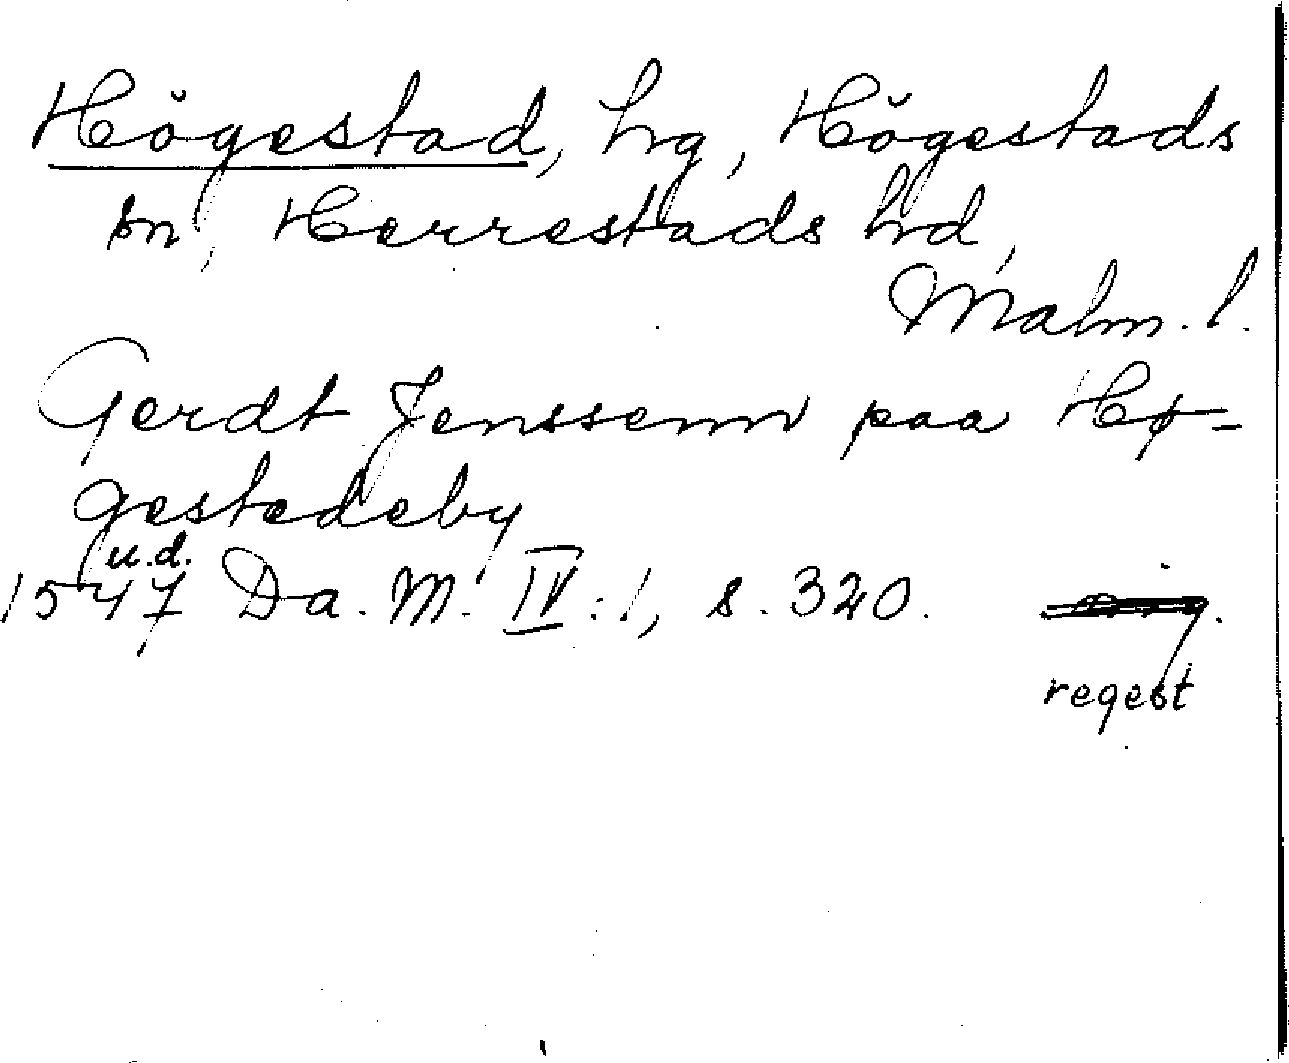 Högestad, hg, Högestads
sn, Herrestads hd,
Malm. l.
Gerdt Jenssenn paa Hø-
gestedeby
u.d.
1547 Da. M. IV:1, s. 320.
regest